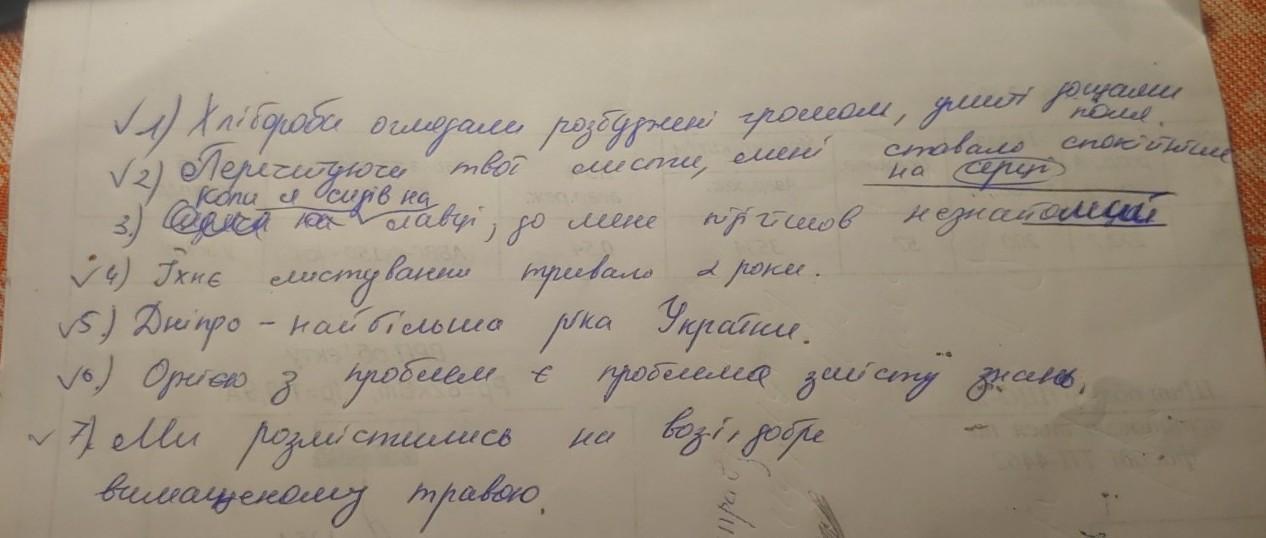 √ 1) Хлібороби оглядали розбуджені громом, умиті дощами
поля.
√ 2) Перечитуючи твої листи, мені ставало спокійніше
на серці
коли я сидів на
3.) лавці, до мене підійшов незнайомий
√ 4) Їхнє листування тривало 2 роки.
√ 5.) Дніпро – найбільша ріка України.
√ 6.) Однією з проблем є проблема змісту знань.
√ 7) Ми розмістились на возі, добре
вимащеному травою.